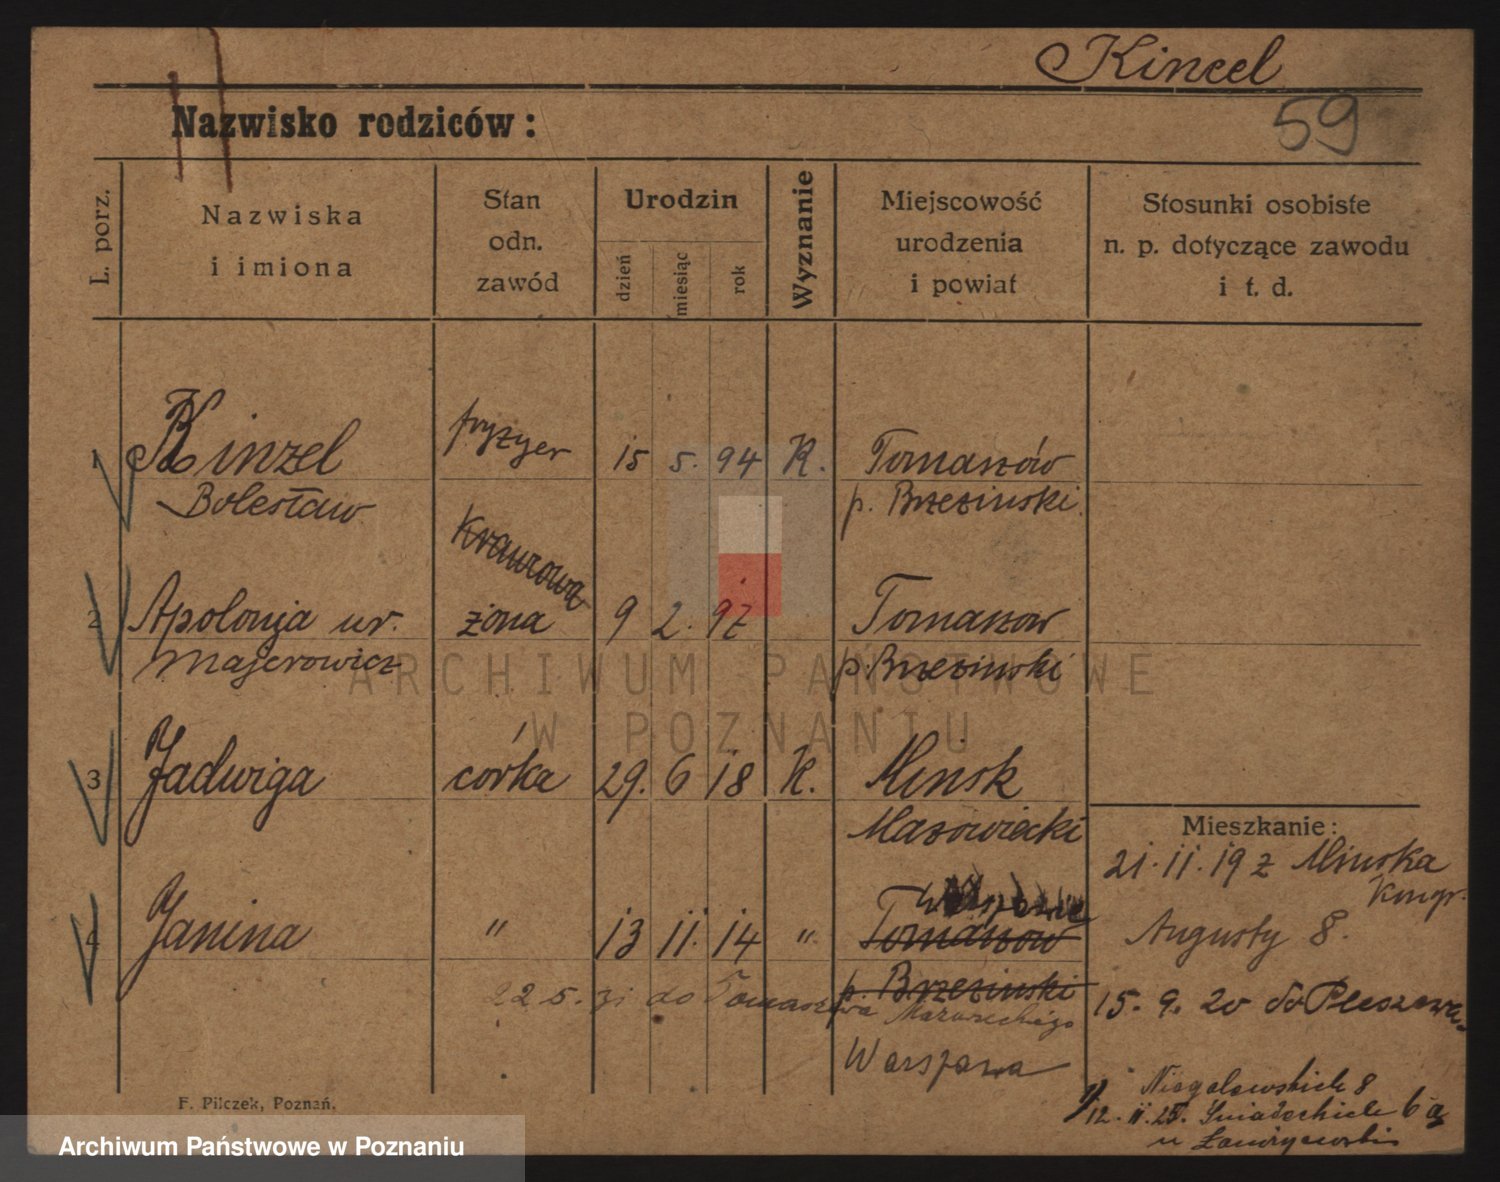 Kincel
59
Nazwisko rodziców:
L. porz.
Nazwiska
i imiona
Stan
odn.
zawód
Urodzin
dzień
miesiąc
rok
Wyznanie
Miejscowość
urodzenia
i powiat
Stosunki osobiste
n. p. dotyczące zawodu
i t. d.
1 Kinzel fryzyer 15 5. 94 K. Tomaszów
Bolesław p. Brzezinski.
Krawcowa
2 Apolonja ur. żona 9 2. 97 Tomaszow
Majerowicz p. Brzezinski
3 Jadwiga córka 29. 6 18 K. Minsk
Mazowiecki
Mieszkanie:
21. 11. 19 z Minska
Kongr.
Warszawa
4 Janina " 13 11. 14 " Tomaszow
Augusty 8.
p. Brzezinski
22 5. 21 do Tomaszowa Mazowieckiego
15. 9. 20 do Pleszewa
Warszawa
Niegolewskich 8
12. 11. 20. 6a
u
F. Pilczek, Poznań.
ARCHIWUM PAŃSTWOWE
W POZNANIU
Archiwum Państwowe w Poznaniu